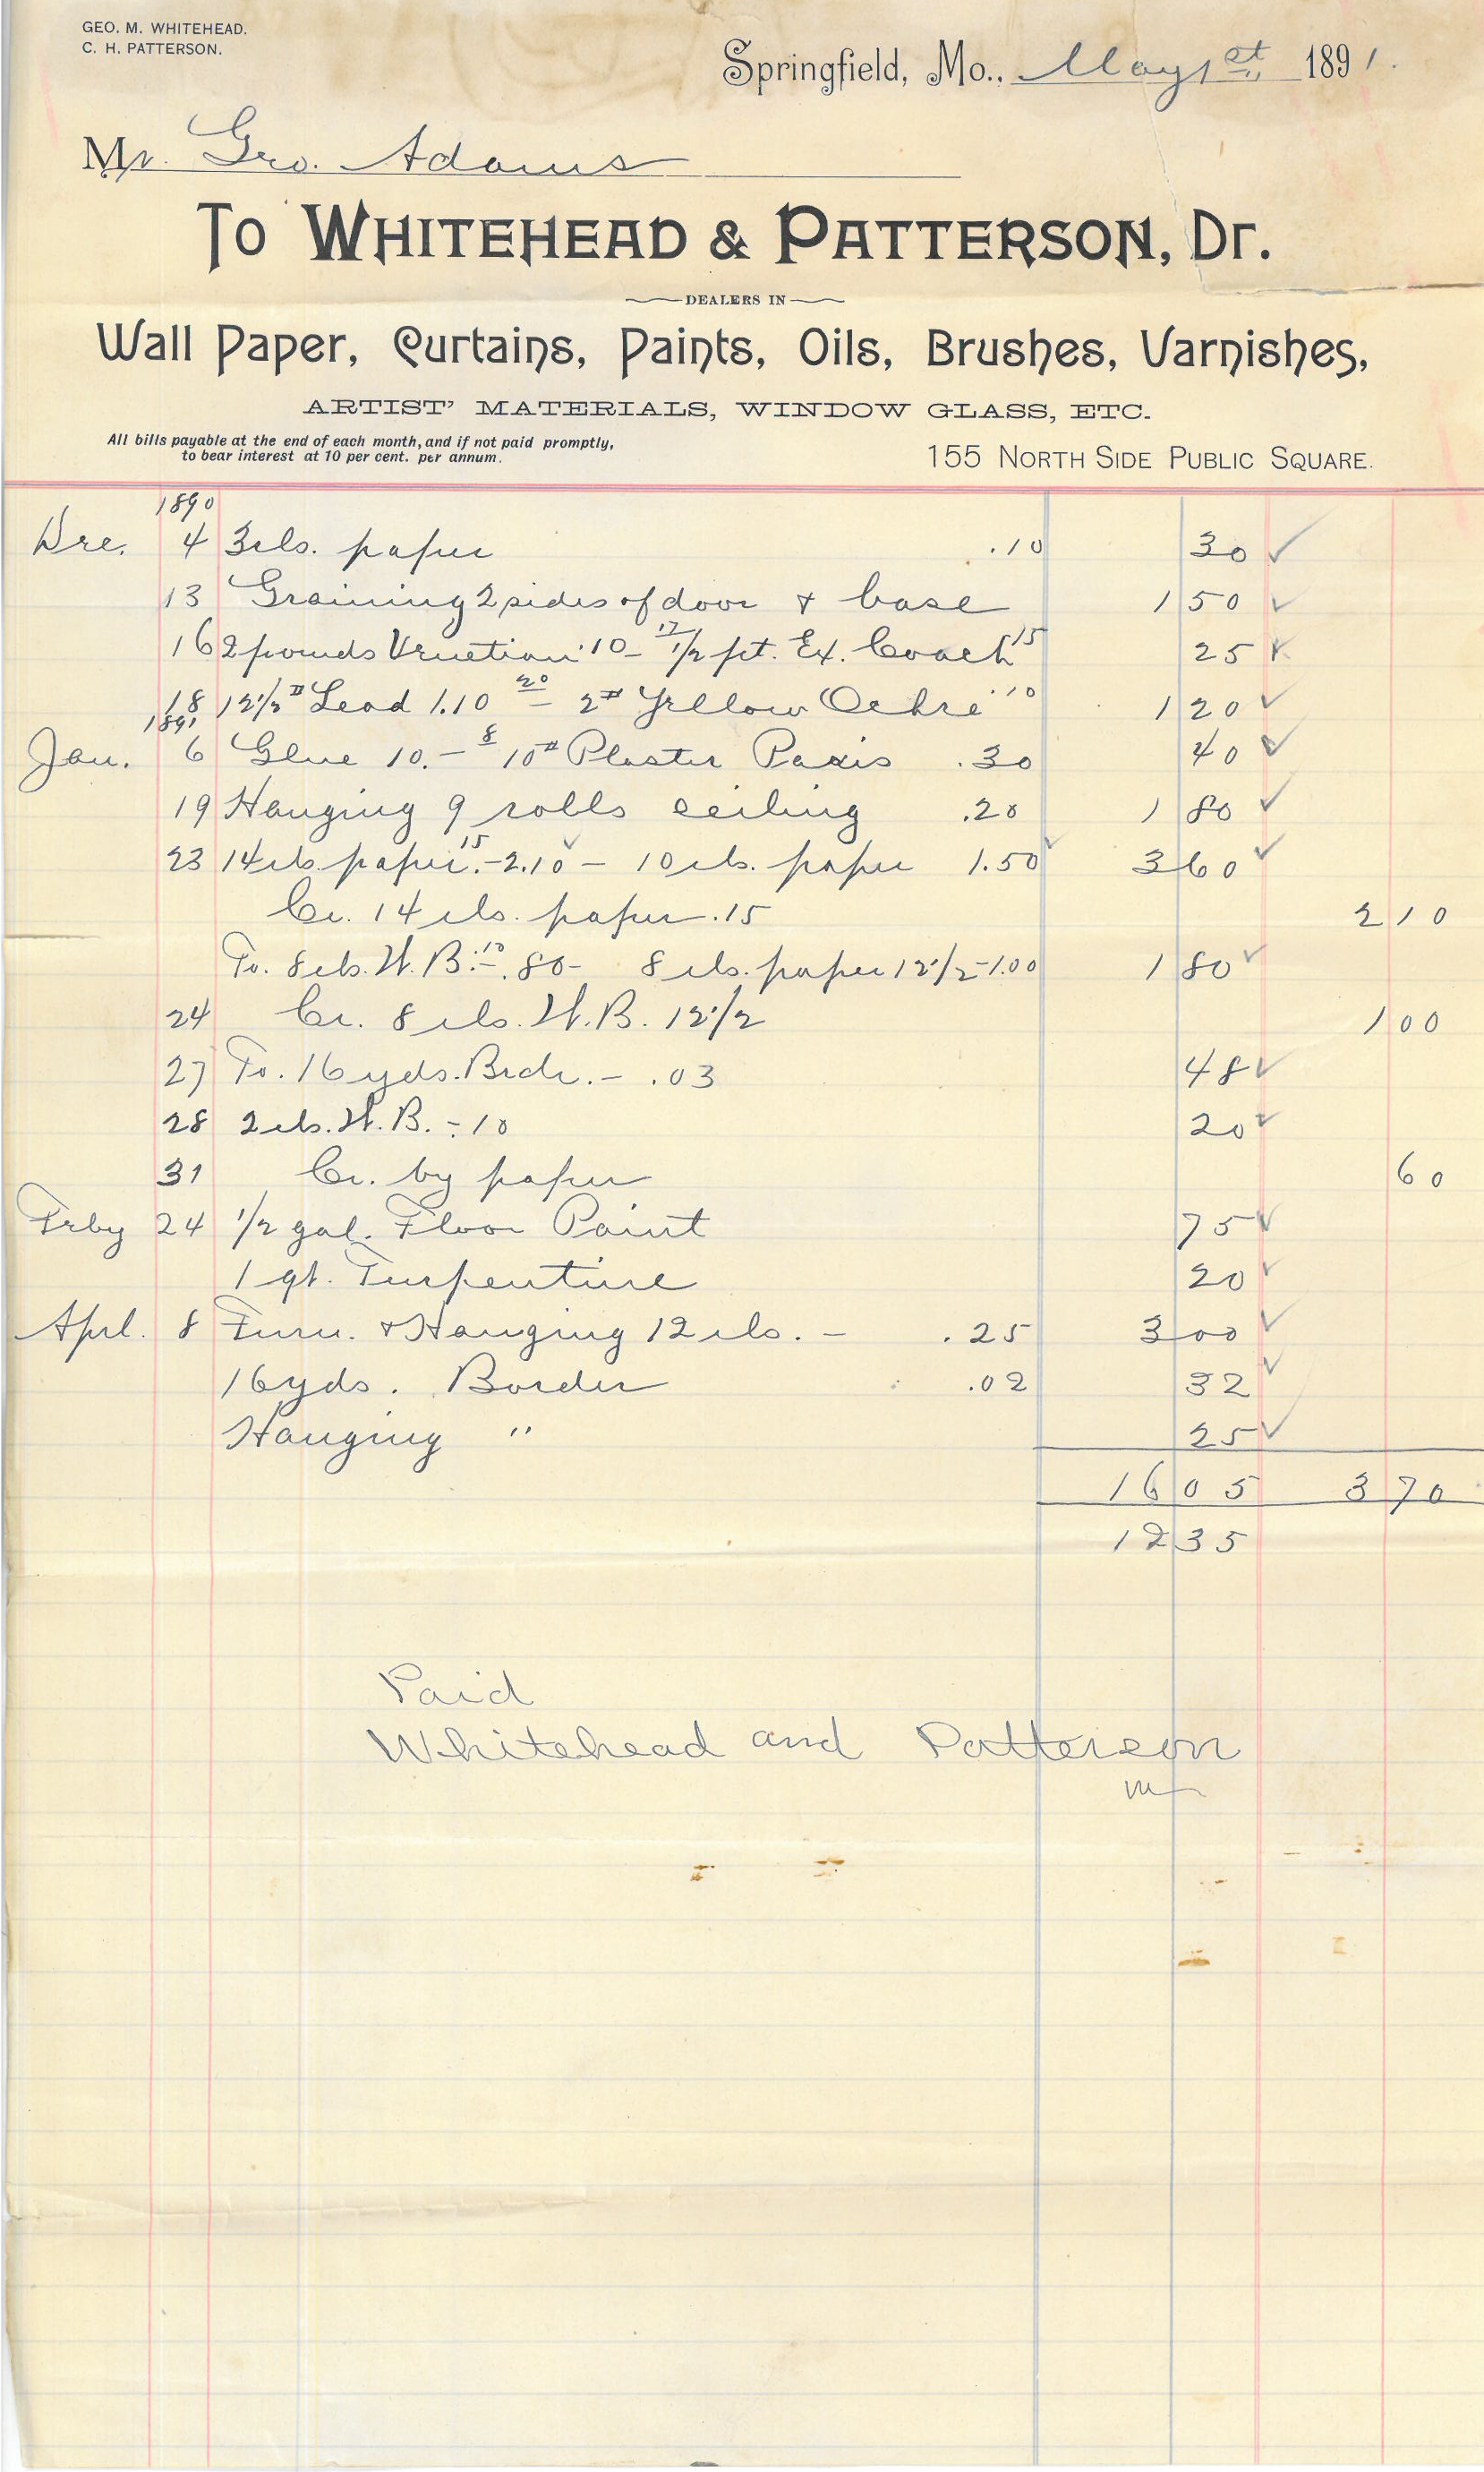 GEO. M. WHITEHEAD.
C. H. PATTERSON.
Springfield, Mo., May 1st, 1891.
Mr. Geo. Adams
To WHITEHEAD & PATTERSON, Dr.
DEALERS IN
Wall Paper, Curtains, Paints, Oils, Brushes, Varnishes,
ARTIST' MATERIALS, WINDOW GLASS, ETC.
All bills payable at the end of each month, and if not paid promptly,
to bear interest at 10 per cent. per annum.
155 NORTH SIDE PUBLIC SQUARE.
1890
Dec. 4 3 rls. paper .10 30 ✓
13 Graining 2 sides of door & base 1 50 ✓
16 2 pounds Venetian 10 - 1/2 pt. Ex. Coach 15 25 ✓
18 12 1/2 # Lead 1.10 - 2 # Yellow Ochre 10 1 20 ✓
1891
Jan. 6 Glue 10. - 10 # Plaster Paris .30 40 ✓
19 Hanging 9 rolls ceiling .20 1 80 ✓
23 14 rls. paper 15 - 2.10 ✓ - 10 rls. paper 1.50 ✓ 3 60 ✓
Cr. 14 rls. paper .15 2 10
To. 8 rls. H. B. 10 - .80 - 8 rls. paper 12 1/2 - 1.00 1 80 ✓
24 Cr. 8 rls. H. B. 12 1/2 1 00
27 To. 16 yds. Brdr. - .03 48 ✓
28 2 rls. H. B. - 10 20 ✓
31 Cr. by paper 60
Feby 24 1/2 gal. Floor Paint 75 ✓
1 qt. Turpentine 20 ✓
Aprl. 8 Furn. & Hanging 12 rls. - .25 3 00 ✓
16 yds. Border .02 32 ✓
Hanging " 25 ✓
16 05 3 70
12 35
Paid
Whitehead and Patterson